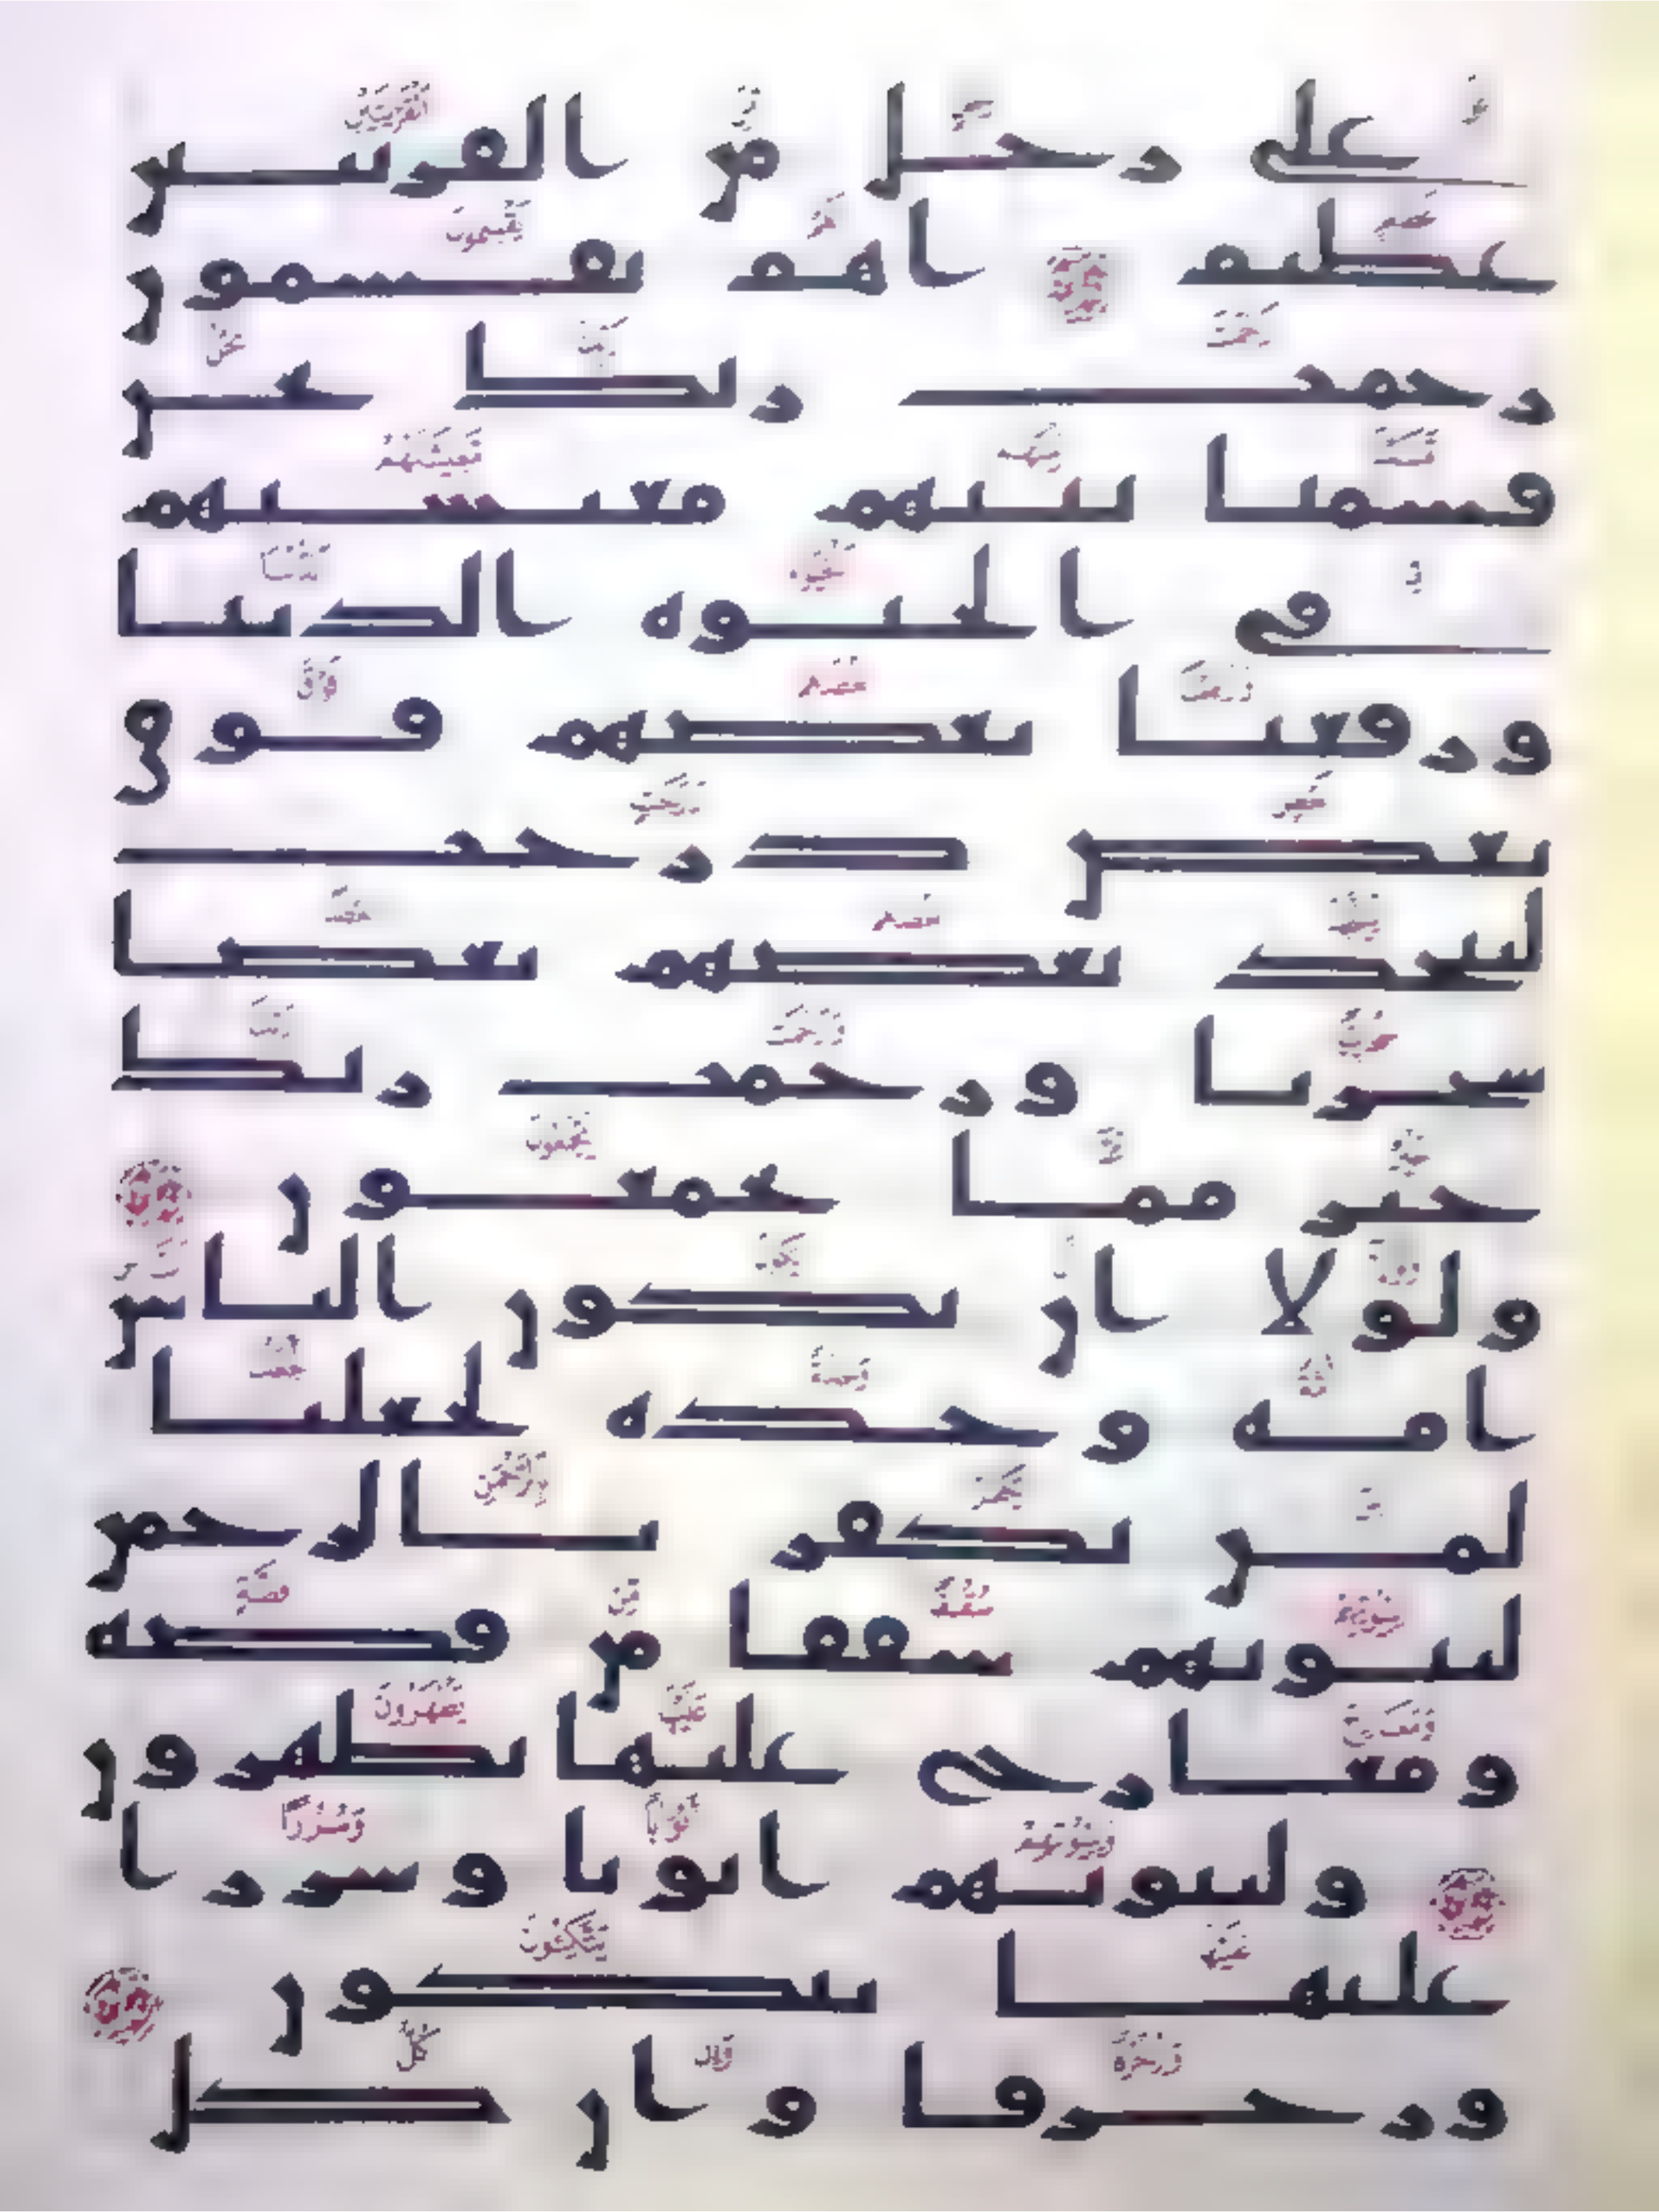 على رجل من القريتين
عظيم اهم يقسمون
رحمت ربك نحن
قسمنا بينهم معيشتهم
في الحيوه الدنيا
ورفعنا بعضهم فوق
بعض درجت
ليتخذ بعضهم بعضا
سخريا ورحمت ربك
خير مما يجمعون
ولولا ان يكون الناس
امه وحده لجعلنا
لمن يكفر بالرحمن
لبيوتهم سقفا من فضه
ومعارج عليها يظهرون
ولبيوتهم ابوبا وسررا
عليها يتكون
وزخرفا وان كل